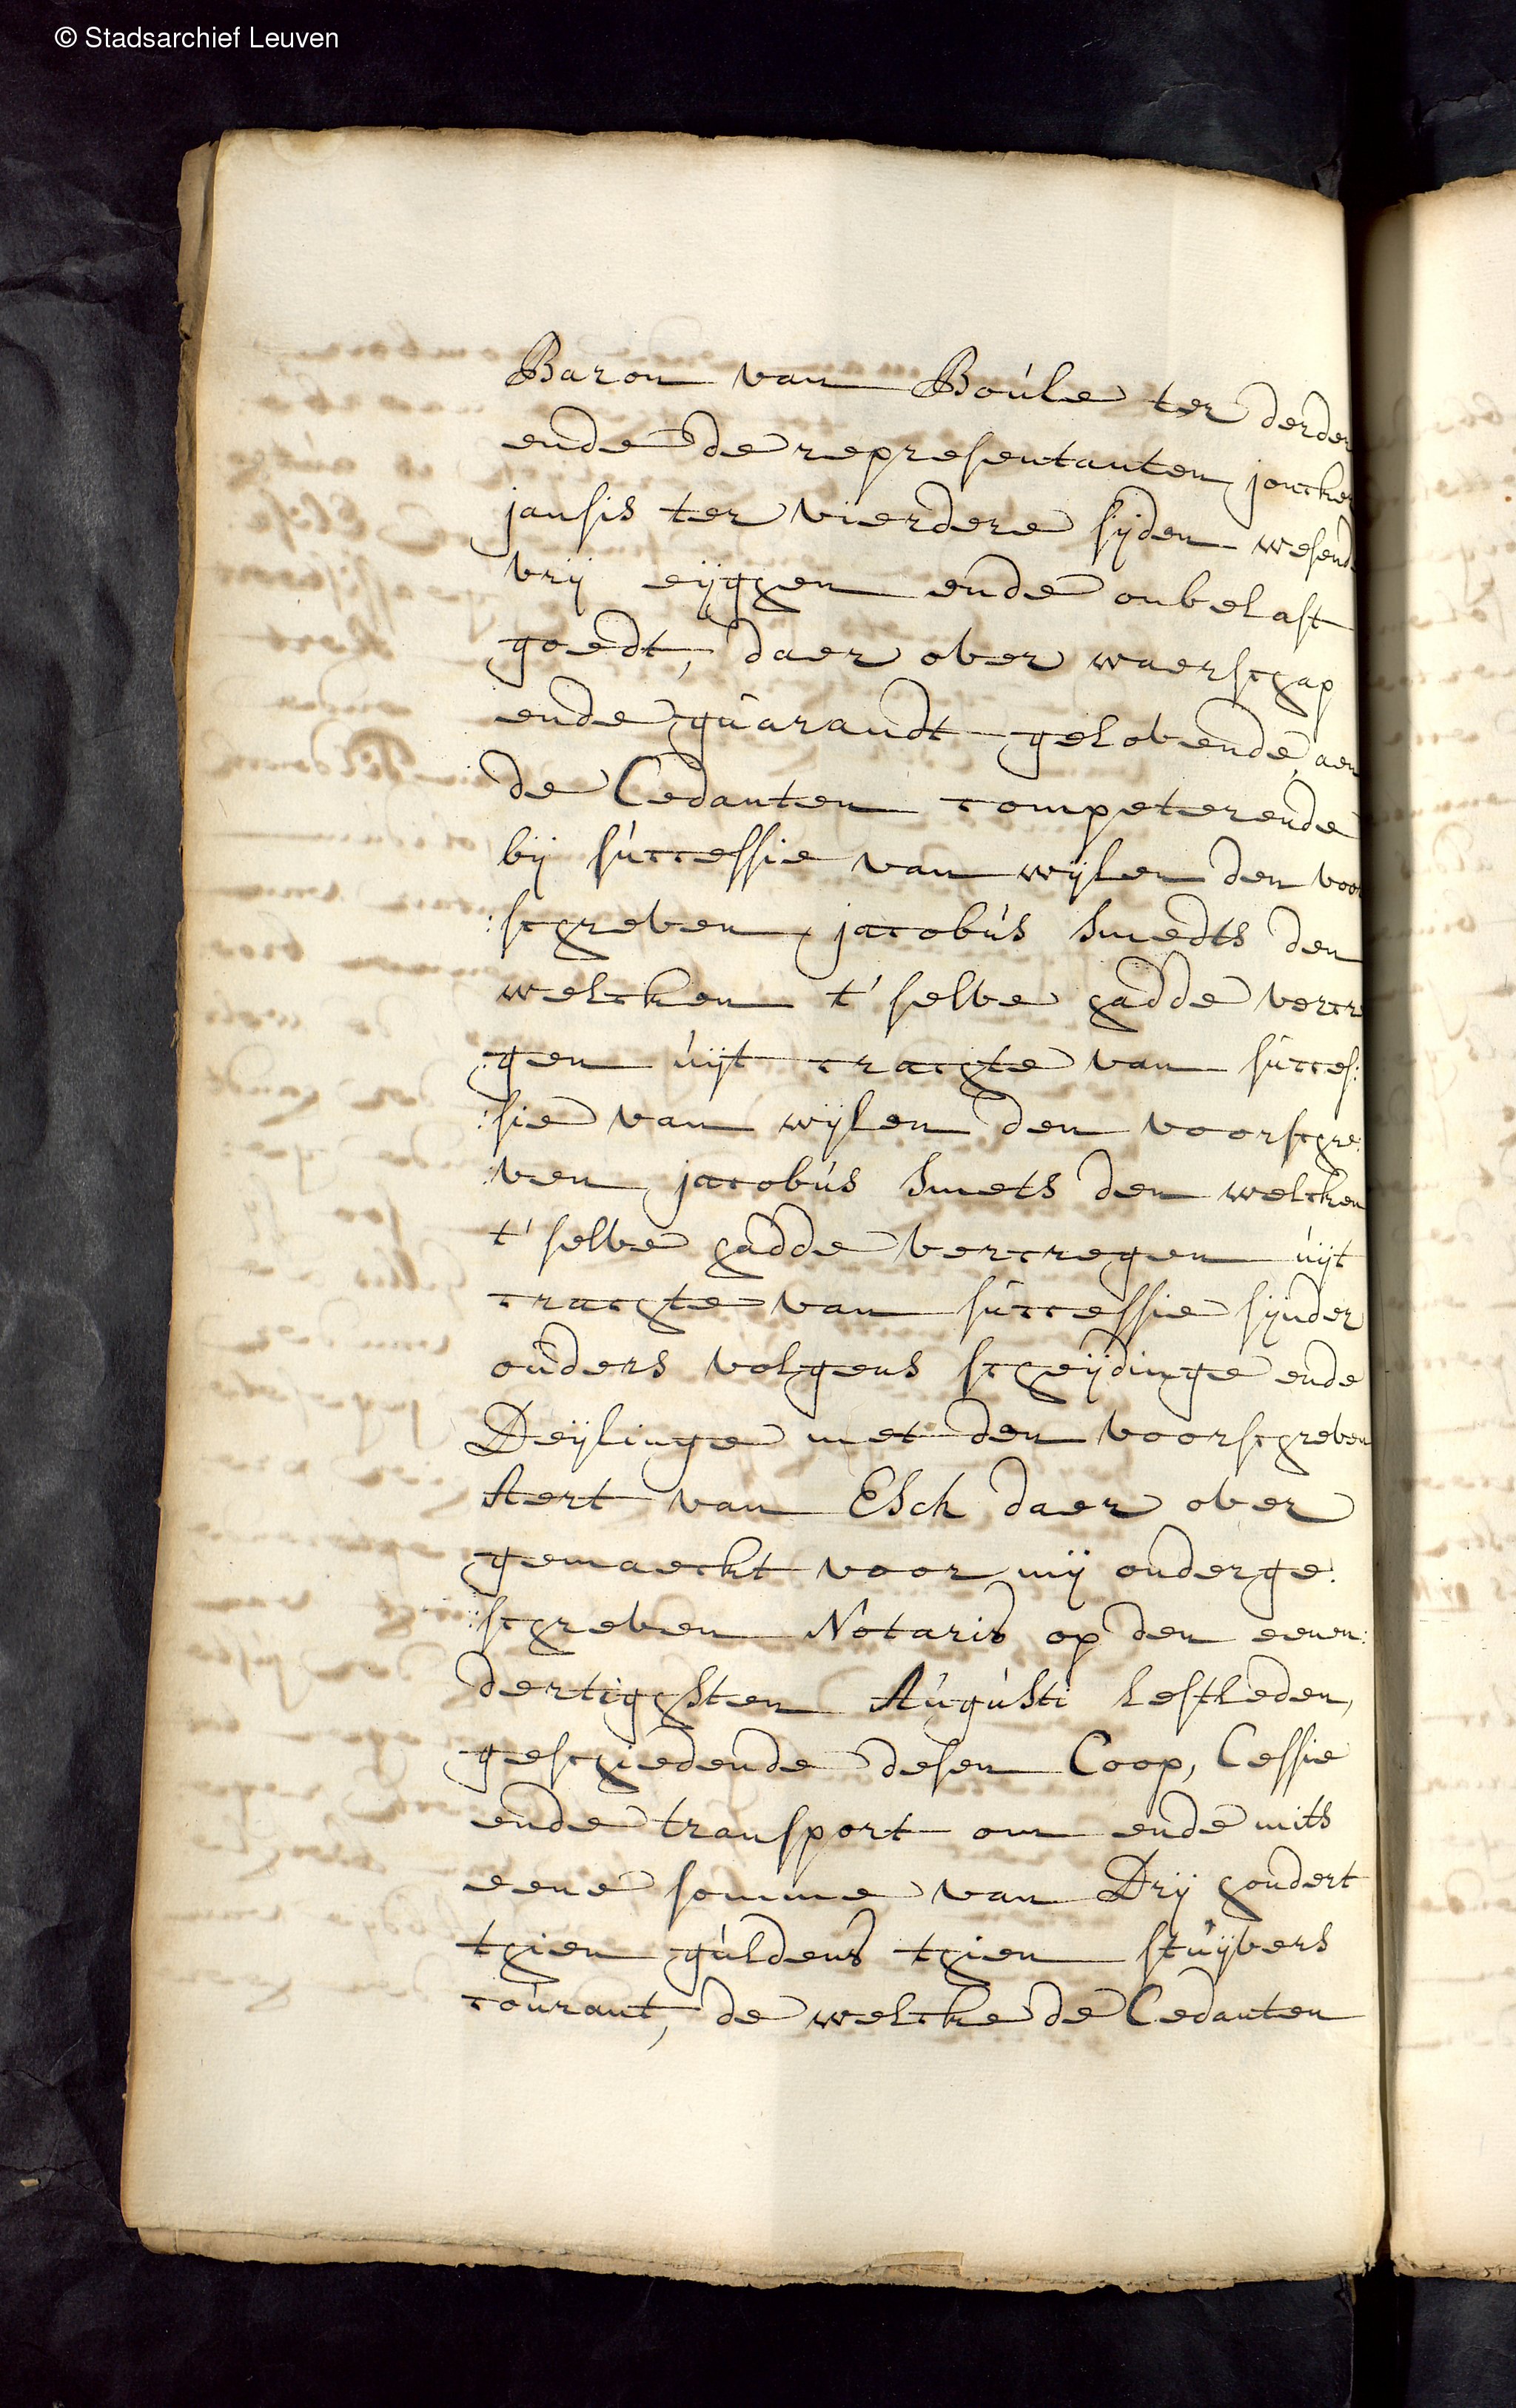 © Stadsarchief Leuven
Baron van Boule ter derder
ende de representanten joncker
jansis ter vierdere sijden wesende
vrij eijgen ende onbelast
goedt, daer over waerschap
ende guarandt gelovende, aen
de Cedanten competerende
bij successie van wijlen den voor
:schreven jacobus Smedts den
welcken t'selve hadde vercre
:gen uijt crachte van succes:
:sie van wijlen den voorschre:
:ven jacobus Smets den welcken
t'selve hadde vercregen uijt
crachte van successie sijnder
ouders volgens scheijdinge ende
Deijlinge met den voorschreven
Aert van Esch daer over
gemaeckt voor mij onderge:
:schreven Notaris op den eenen:
dertighsten Augusti lestleden,
geschiedende desen Coop, Cessie
ende transport om ende mits
eene somme van Drij hondert
thien guldens thien stuijvers
courant, de welcke de Cedanten